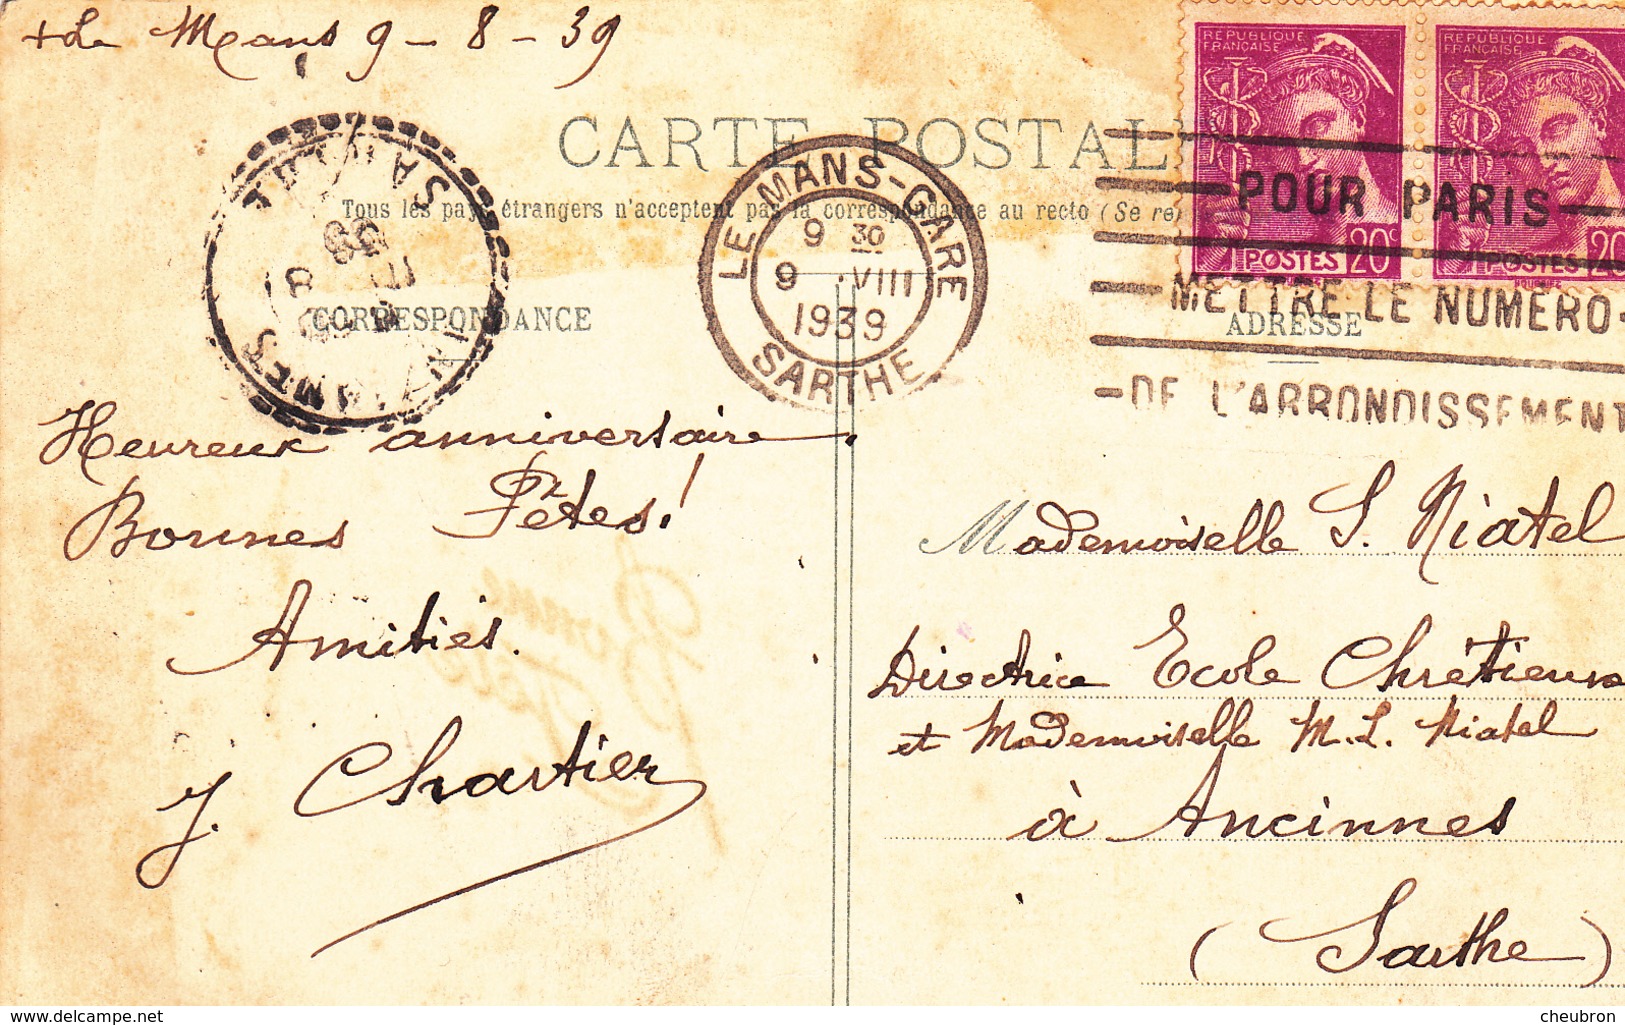 + Le Mans 9 - 8 - 39
CARTE POSTAL
Tous les pays étrangers n'acceptent pas la correspondance au recto (Se re
CORRESPONDANCE
ADRESSE
REPUBLIQUE
FRANÇAISE
POSTES 20c
REPUBLIQUE
FRANÇAISE
POSTES 20
LE MANS-GARE
9 30
9 VIII
1939
SARTHE
POUR PARIS
METTRE LE NUMERO
DE L'ARRONDISSEMENT
39
Heureux anniversaire.
Bonnes Fêtes!
Amitiés.
J. Chartier
Mademoiselle S. Niatel
Directrice Ecole Chrétienne
et Mademoiselle M. L. Niatel
à Ancinnes
(Sarthe)
www.delcampe.net
cheubron